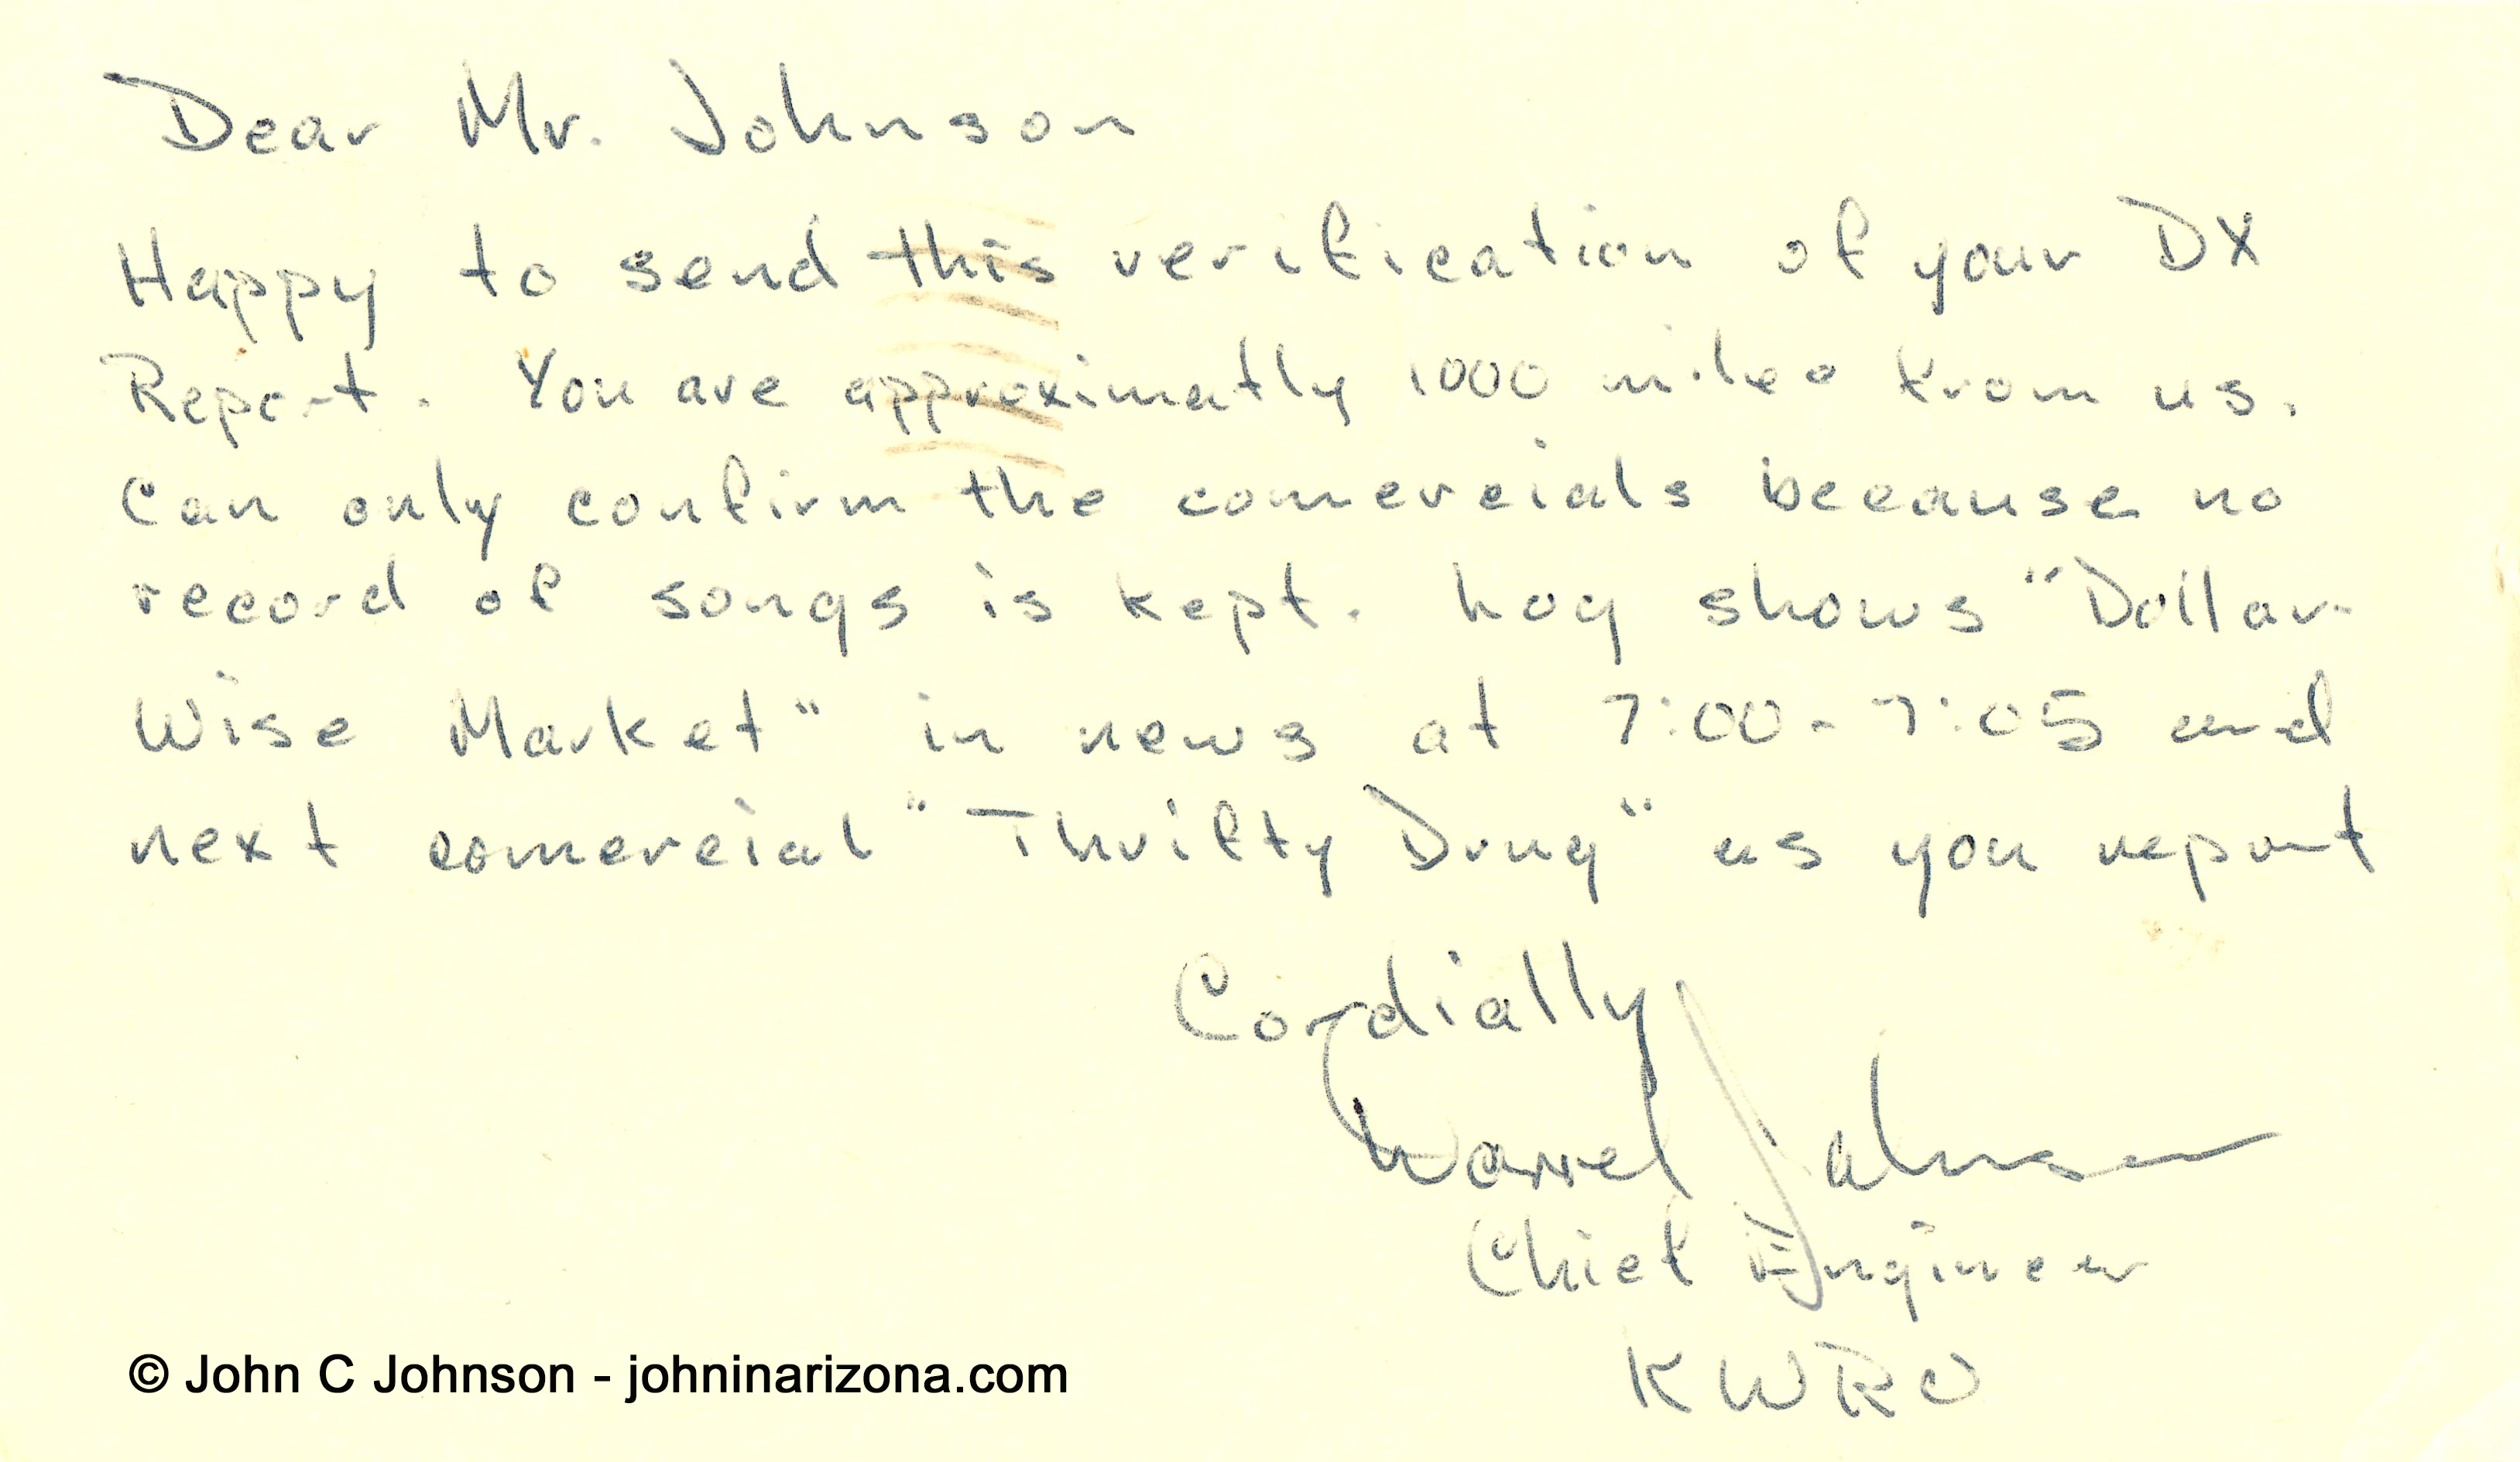 Dear Mr. Johnson
Happy to send this verification of your DX
Report. You are approximatly 1000 miles from us.
Can only confirm the comercials because no
record of songs is kept. Log shows "Dollar
Wise Market" in news at 7:00-7:05 and
next comercial "Thrifty Drug" as you report
Cordially
Warrel Johnson
Chief Engineer
KWRO
© John C Johnson - johninarizona.com